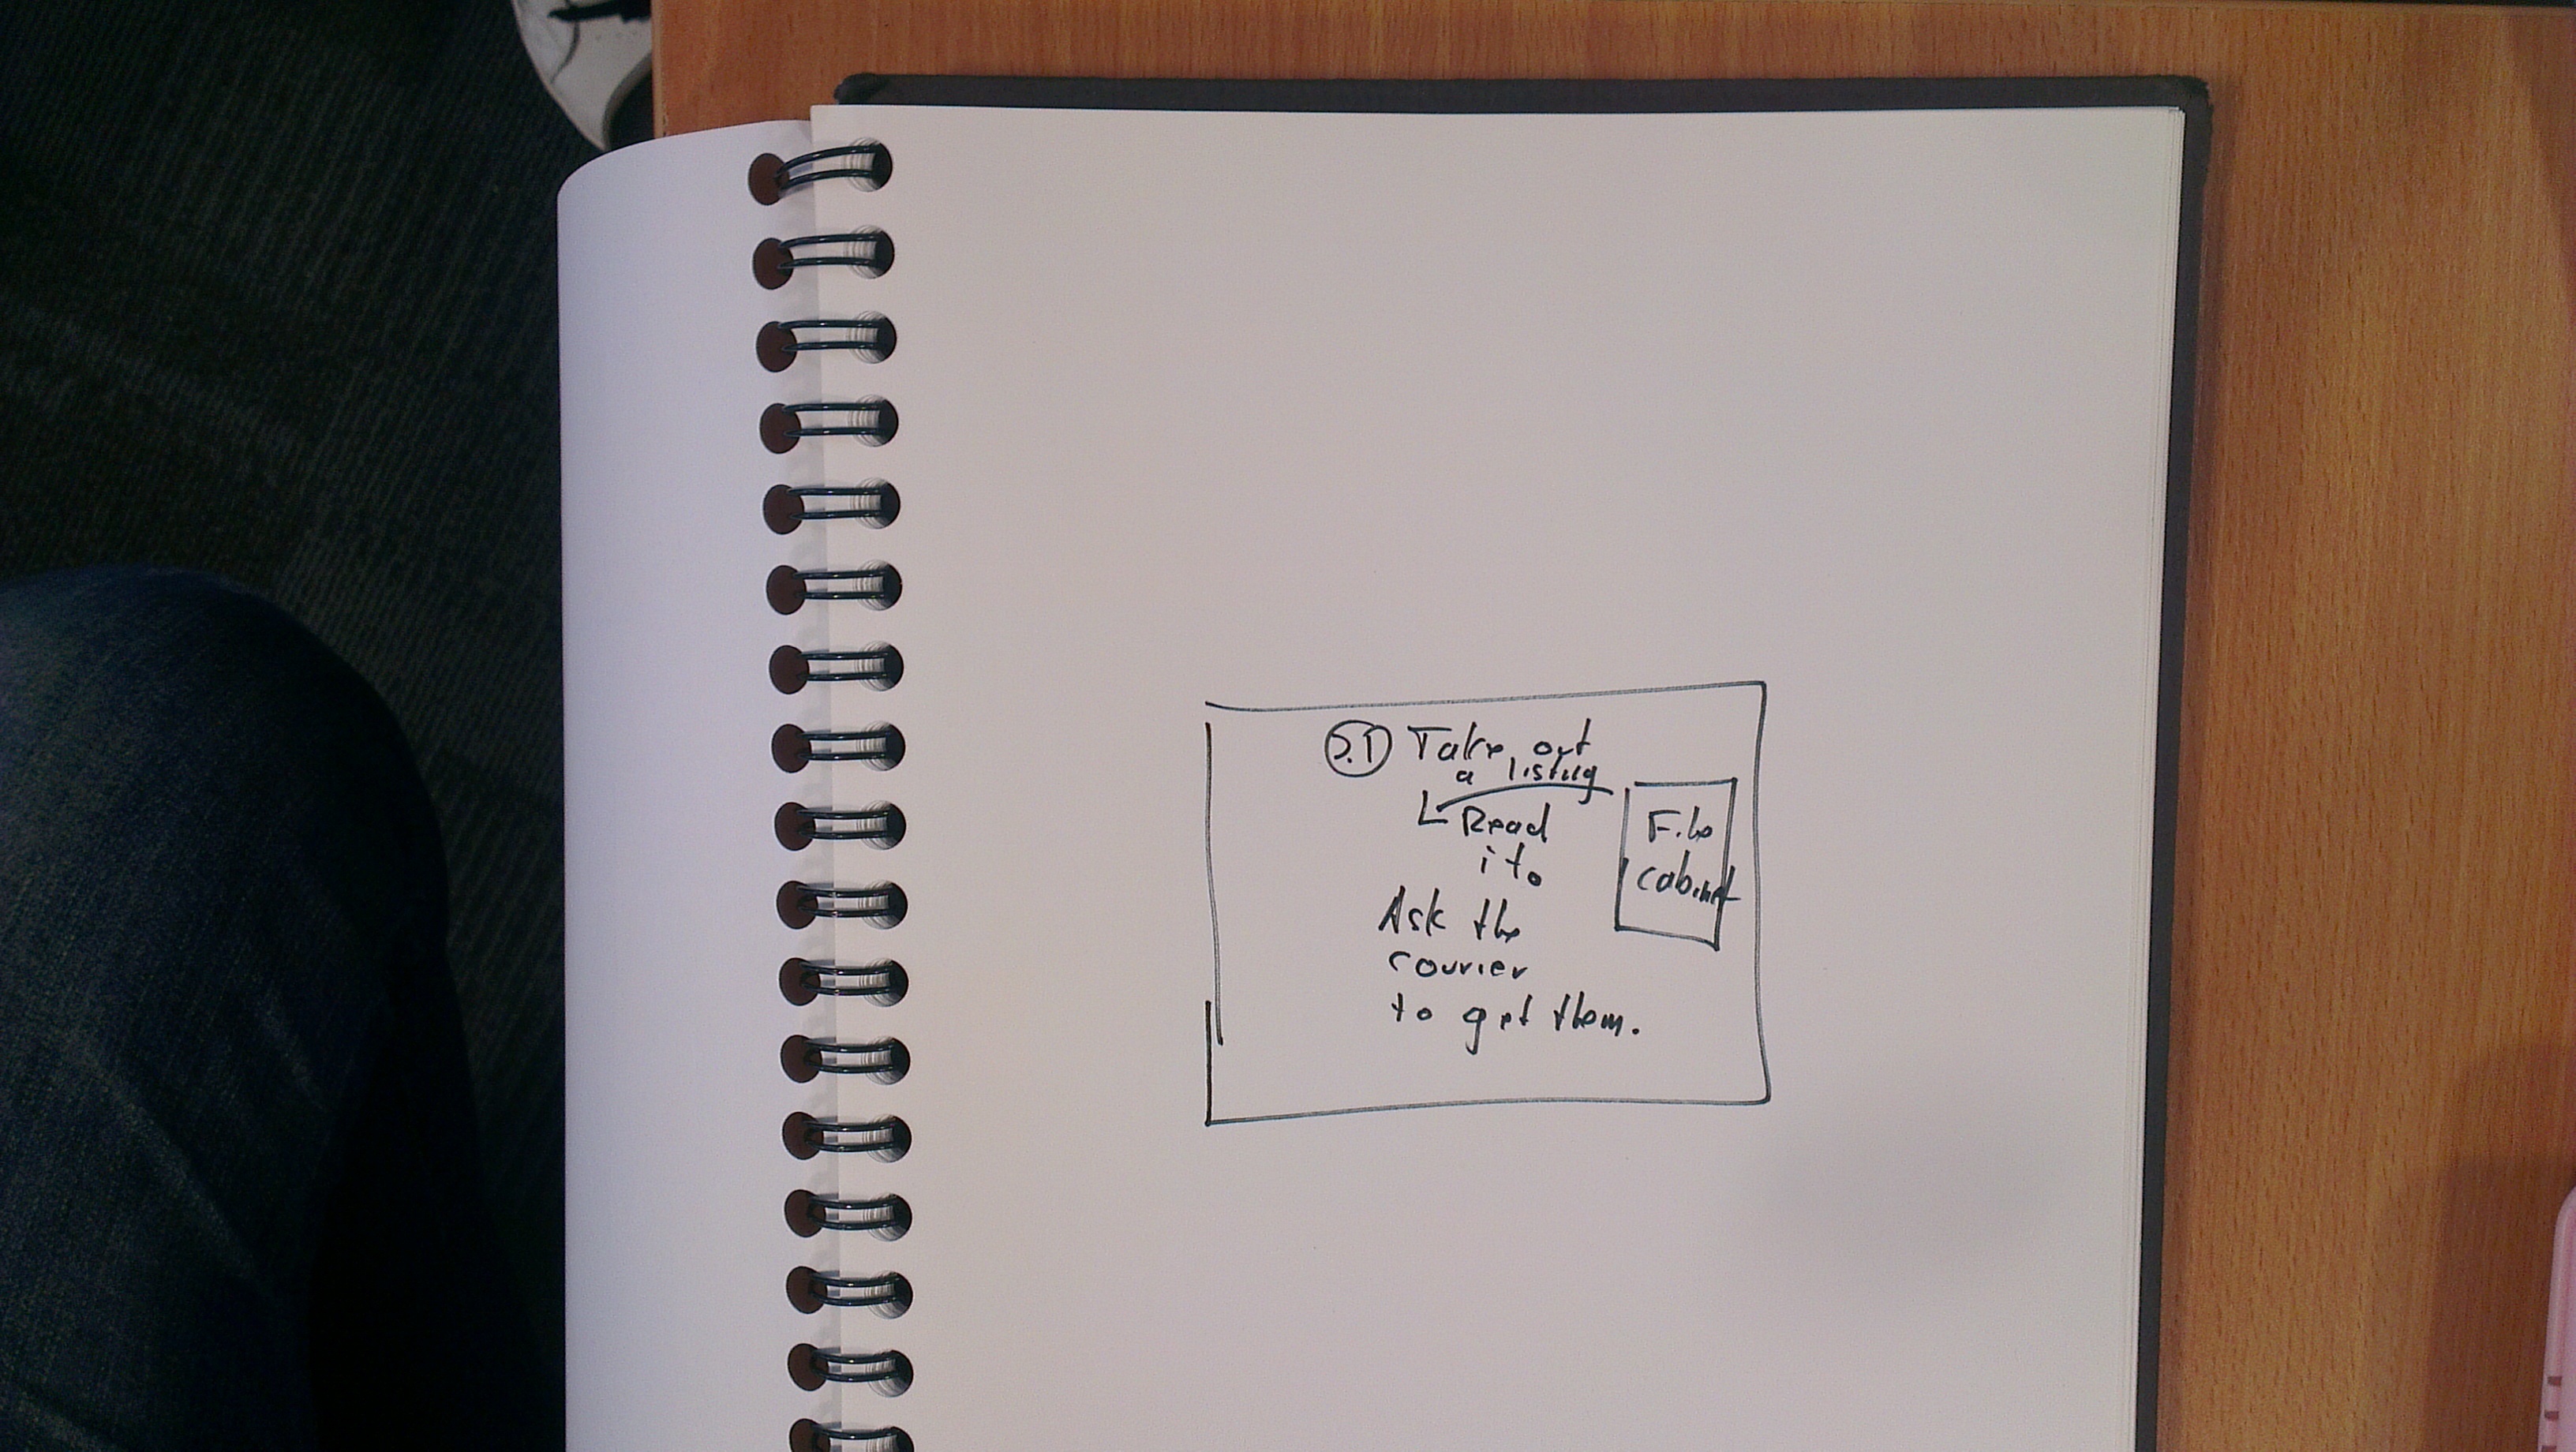 Take out
a listing
Read
it.
Ask the
courier
to get them.
File
cabinet